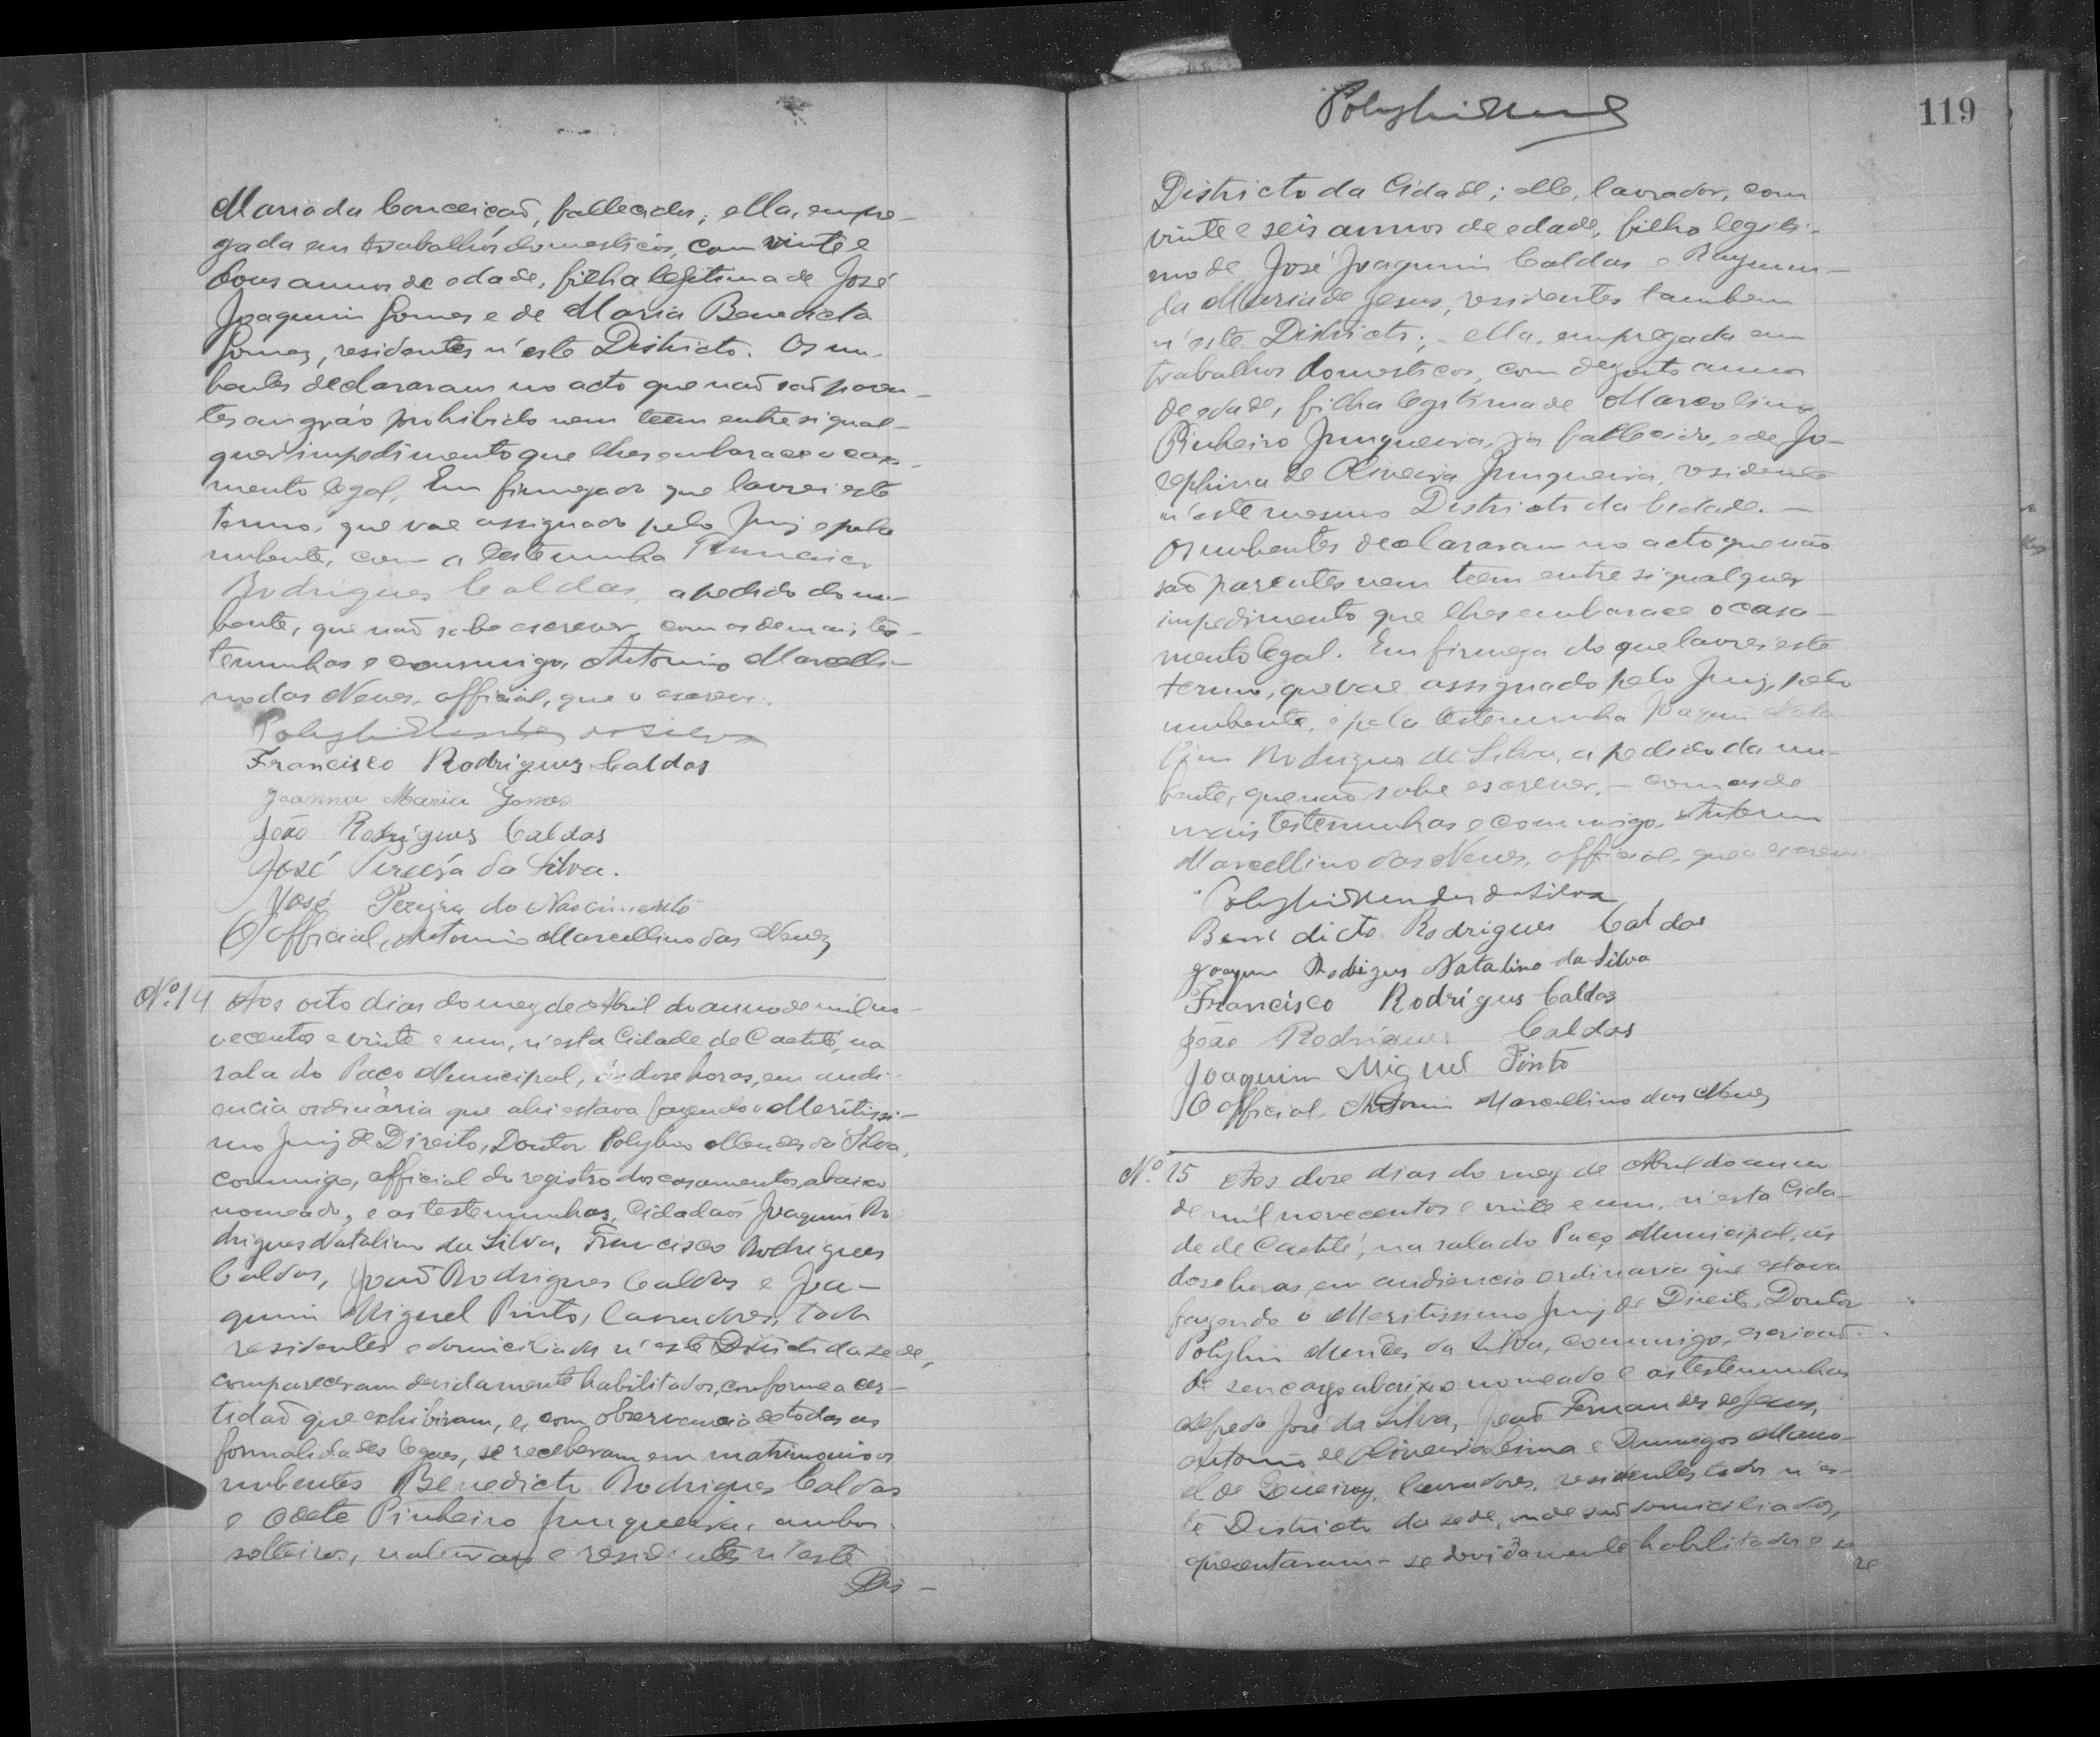 Maria da Conceição, fallecida; ella, empre-
gada em trabalhos domesticos, com vinte e
dous annos de edade, filha legitima de José
Joaquim Gomes e de Maria Benedicta
Gomes, residentes n'este Districto. Os nu-
bentes declararam no acto que não são paren-
tes em gráo prohibido nem teem entre si qual-
quer impedimento que lhes embarace o casa-
mento legal. Em firmeza do que lavrei este
termo, que vae assignado pelo Juiz e pela
nubente, com a testemunha Francisco
Rodrigues Caldas, a pedido do nu-
bente, que não sabe escrever, com as demais tes-
temunhas e commigo, Antonio Marcelli-
no das Neves, official, que o escrevi.
Polybio Mendes da Silva
Francisco Rodrigues Caldas
Joanna Maria Gomes
João Rodrigues Caldas
José Pereira da Silva.
José Pereira do Nascimento
O official, Antonio Marcellino das Neves
Nº 14 Aos oito dias do mez de Abril do anno de mil no-
vecentos e vinte e um, n'esta Cidade de Caetité, na
sala do Paço Municipal, ás dose horas, em audi-
encia ordinaria que ahi estava fazendo o Meritissi-
mo Juiz de Direito, Doutor Polybio Mendes da Silva,
commigo, official do registro dos casamentos, abaixo
nomeado, e as testemunhas, Cidadãos Joaquim Ro
drigues Natalino da Silva, Francisco Rodrigues
Caldas, João Rodrigues Caldas e Joa-
quim Miguel Pinto, lavradores, todos
residentes e domiciliados n'este Districto da sede,
compareceram devidamente habilitados, conforme a cer-
tidão que exhibiram, e, com observancia de todas as
formalidades legaes, se receberam em matrimonio os
nubentes Benedicto Rodrigues Caldas
e Odete Pinheiro Junqueira, ambos
solteiros, naturaes e residentes n'este
Dis-
Polybio Mendes
119
Districto da Cidade; elle, lavrador, com
vinte e seis annos de edade, filho legiti-
mo de José Joaquim Caldas e Raymun-
da Maria de Jesus, residentes tambem
n'este Districto; ella, empregada em
trabalhos domesticos, com dezoito annos
de edade, filha legitima de Marcolino
Pinheiro Junqueira, já fallecido, e de Jo-
sephina de Oliveira Junqueira, residente
n'este mesmo Districto da Cidade. -
Os nubentes declararam no acto que não
são parentes nem teem entre si qualquer
impedimento que lhes embarace o casa-
mento legal. Em firmeza do que lavrei este
termo, que vae assignado pelo Juiz, pelo
nubente, e pela testemunha Joaquim Nata
lino Rodrigues da Silva, a pedido da nu-
bente, que não sabe escrever, - com as de
mais testemunhas e commigo, Antonio
Marcellino das Neves, official, que o escrevi
Polybio Mendes da Silva
Benedicto Rodrigues Caldas
Joaquim Rodrigues Natalino da Silva
Francisco Rodrigues Caldas
João Rodrigues Caldas
Joaquim Miguel Pinto
O official, Antonio Marcellino das Neves
Nº 15 Aos dose dias do mez de Abril do anno
de mil novecentos e vinte e um, n'esta Cida-
de de Caetité, na sala do Paço Municipal, ás
dose horas, em audiencia ordinaria que estava
fazendo o Meritissimo Juiz de Direito, Doutor
Polybio Mendes da Silva, commigo, escrivão
de seu cargo abaixo nomeado e as testemunhas
José da Silva, João Fernandes de Jesus,
Antonio de Oliveira Lima e Domingos Mano-
el de Queiroz, lavradores, residentes todos n'es-
te Districto da sede, onde são domiciliados,
apresentaram-se devidamente habilitados e se
re